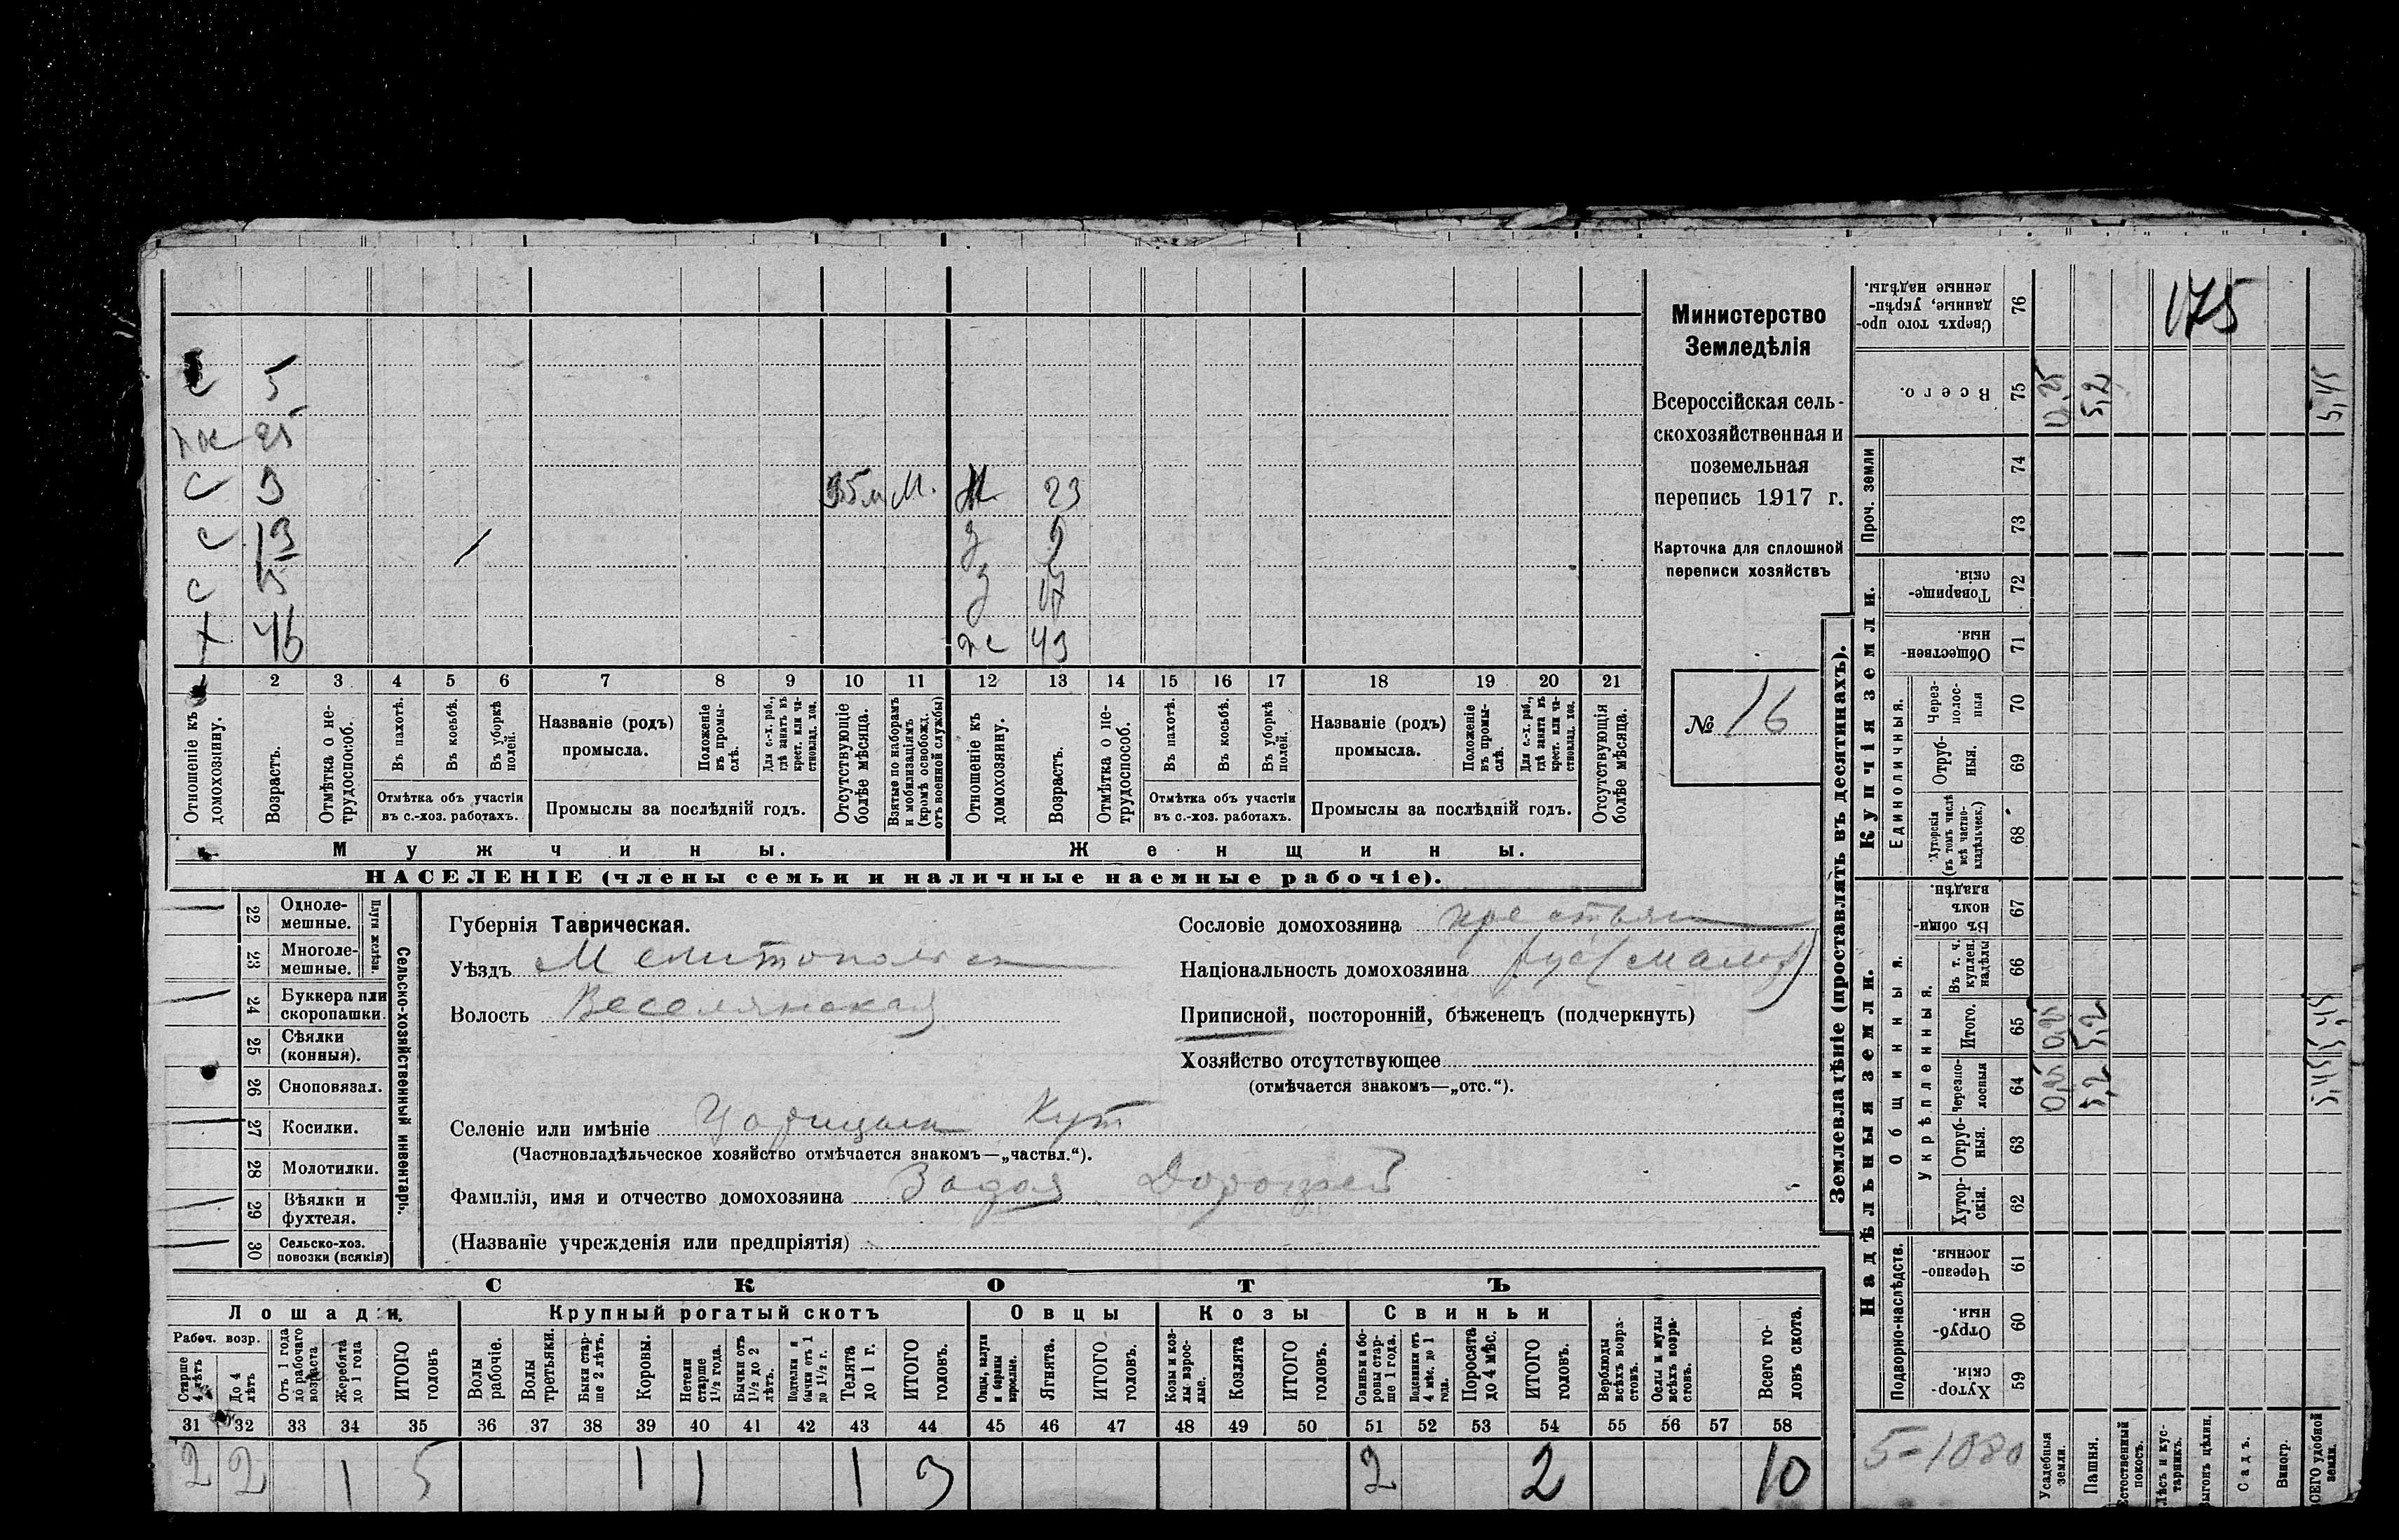 с 5
ж 25
с 3 35 м М. М 23
с 13 / д 9
с 15 д 17
х 46 ж 43
1 2 3 4 5 6 7 8 9 10 11 12 13 14 15 16 17 18 19 20 21
Отношеніе къ домохозяину.
Возрастъ.
Отмѣтка о не-трудоспособ.
Въ пахотѣ.
Въ косьбѣ.
Въ уборкѣ полей.
Отмѣтка объ участіи
въ с.-хоз. работахъ.
Названіе (родъ)
промысла.
Положеніе въ промы-слѣ.
Для с.-х. раб., гдѣ занятъ въ крест. или ча-стновлад. хоз.
Промыслы за послѣдній годъ.
Отсутствующіе болѣе мѣсяца.
Взятые по наборамъ и мобилизаціямъ (кромѣ освобожд. отъ военной службы)
Отношеніе къ домохозяину.
Возрастъ.
Отмѣтка о не-трудоспособ.
Въ пахотѣ.
Въ косьбѣ.
Въ уборкѣ полей.
Отмѣтка объ участіи
въ с.-хоз. работахъ.
Названіе (родъ)
промысла.
Положеніе въ промы-слѣ.
Для с.-х. раб., гдѣ занята въ крест. или ча-стновлад. хоз.
Промыслы за послѣдній годъ.
Отсутствующія болѣе мѣсяца.
Мужчины. Женщины.
НАСЕЛЕНІЕ (члены семьи и наличные наемные рабочіе).
Министерство
Земледѣлія
Всероссійская сель-
скохозяйственная и
поземельная
перепись 1917 г.
Карточка для сплошной
переписи хозяйствъ
№ 16
Сельско-хозяйственный инвентарь.
Плуги желѣзн.
22 Однолемешные.
23 Многолемешные.
24 Буккера или скоропашки.
25 Сѣялки (конныя).
26 Сноповязал.
27 Косилки.
28 Молотилки.
29 Вѣялки и фухтеля.
30 Сельско-хоз. повозки (всякія)
Губернія Таврическая.
Уѣздъ Мелитопольск
Волость Веселянская
Селеніе или имѣніе Царицын Кут
(Частновладѣльческое хозяйство отмѣчается знакомъ—„частвл.“).
Фамилія, имя и отчество домохозяина Задоя Дорофей
(Названіе учрежденія или предпріятія)
Сословіе домохозяина крестьян
Національность домохозяина рус (малор)
Приписной, посторонній, бѣженецъ (подчеркнуть)
Хозяйство отсутствующее
(отмѣчается знакомъ—„отс.“).
СКОТЪ
Лошади. Крупный рогатый скотъ Овцы Козы Свиньи
Рабоч. возр.
Старше 4 лѣтъ
До 4 лѣтъ
Отъ 1 года до рабочаго возраста
Жеребята до 1 года
ИТОГО головъ
Волы рабочіе.
Волы третьяки.
Быки стар-ше 2 лѣтъ.
Коровы.
Нетели старше 1½ года.
Бычки отъ 1½ до 2 лѣтъ.
Подтелки и бычки отъ 1 до 1½ г.
Телята до 1 г.
ИТОГО головъ.
Овцы, валухи и бараны взрослые.
Ягнята.
ИТОГО головъ.
Козы и коз-лы взрос-лые.
Козлята
ИТОГО головъ.
Свиньи и бо-ровы стар-ше 1 года.
Подсвинки отъ 4 мѣс. до 1 года.
Поросята до 4 мѣс.
ИТОГО головъ.
Верблюды всѣхъ возра-стовъ.
Ослы и мулы всѣхъ возра-стовъ.
Всего го-ловъ скота.
31 32 33 34 35 36 37 38 39 40 41 42 43 44 45 46 47 48 49 50 51 52 53 54 55 56 57 58
2 2 1 5 1 1 1 3 2 2 10
Землевладѣніе (проставлять въ десятинахъ).
Купчія земли.
Надѣльныя земли.
Сверхъ того про-данные, укрѣп-ленные надѣлы. 76 175
Всего. 75 0,25 5,2 5,45
Проч. земли 74
73
Товарище-скія. 72
Обществен-ныя. 71
Единоличныя.
Через-полос-ныя 70
Отруб-ныя. 69
Хуторскія (въ томъ числѣ всѣ частно-владѣльческ.) 68
Общинныя.
Въ общи-номъ владѣн. 67
Укрѣпленныя.
Въ т. ч. куплен. надѣлы 66
Итого. 65 0,25 5,2 5,45
Черезпо-лосныя 64 0,25 5,2 5,45
Отруб-ныя. 63
Хутор-скія. 62
Подворно-наслѣдств.
Черезпо-лосныя. 61
Отруб-ныя. 60
Хутор-скія. 59
5-1080
Усадебныя земли.
Пашня.
Естественный покосъ.
Лѣсъ и кус-тарникъ.
Выгонъ цѣлин.
Садъ.
Виногр.
ВСЕГО удобной земли.